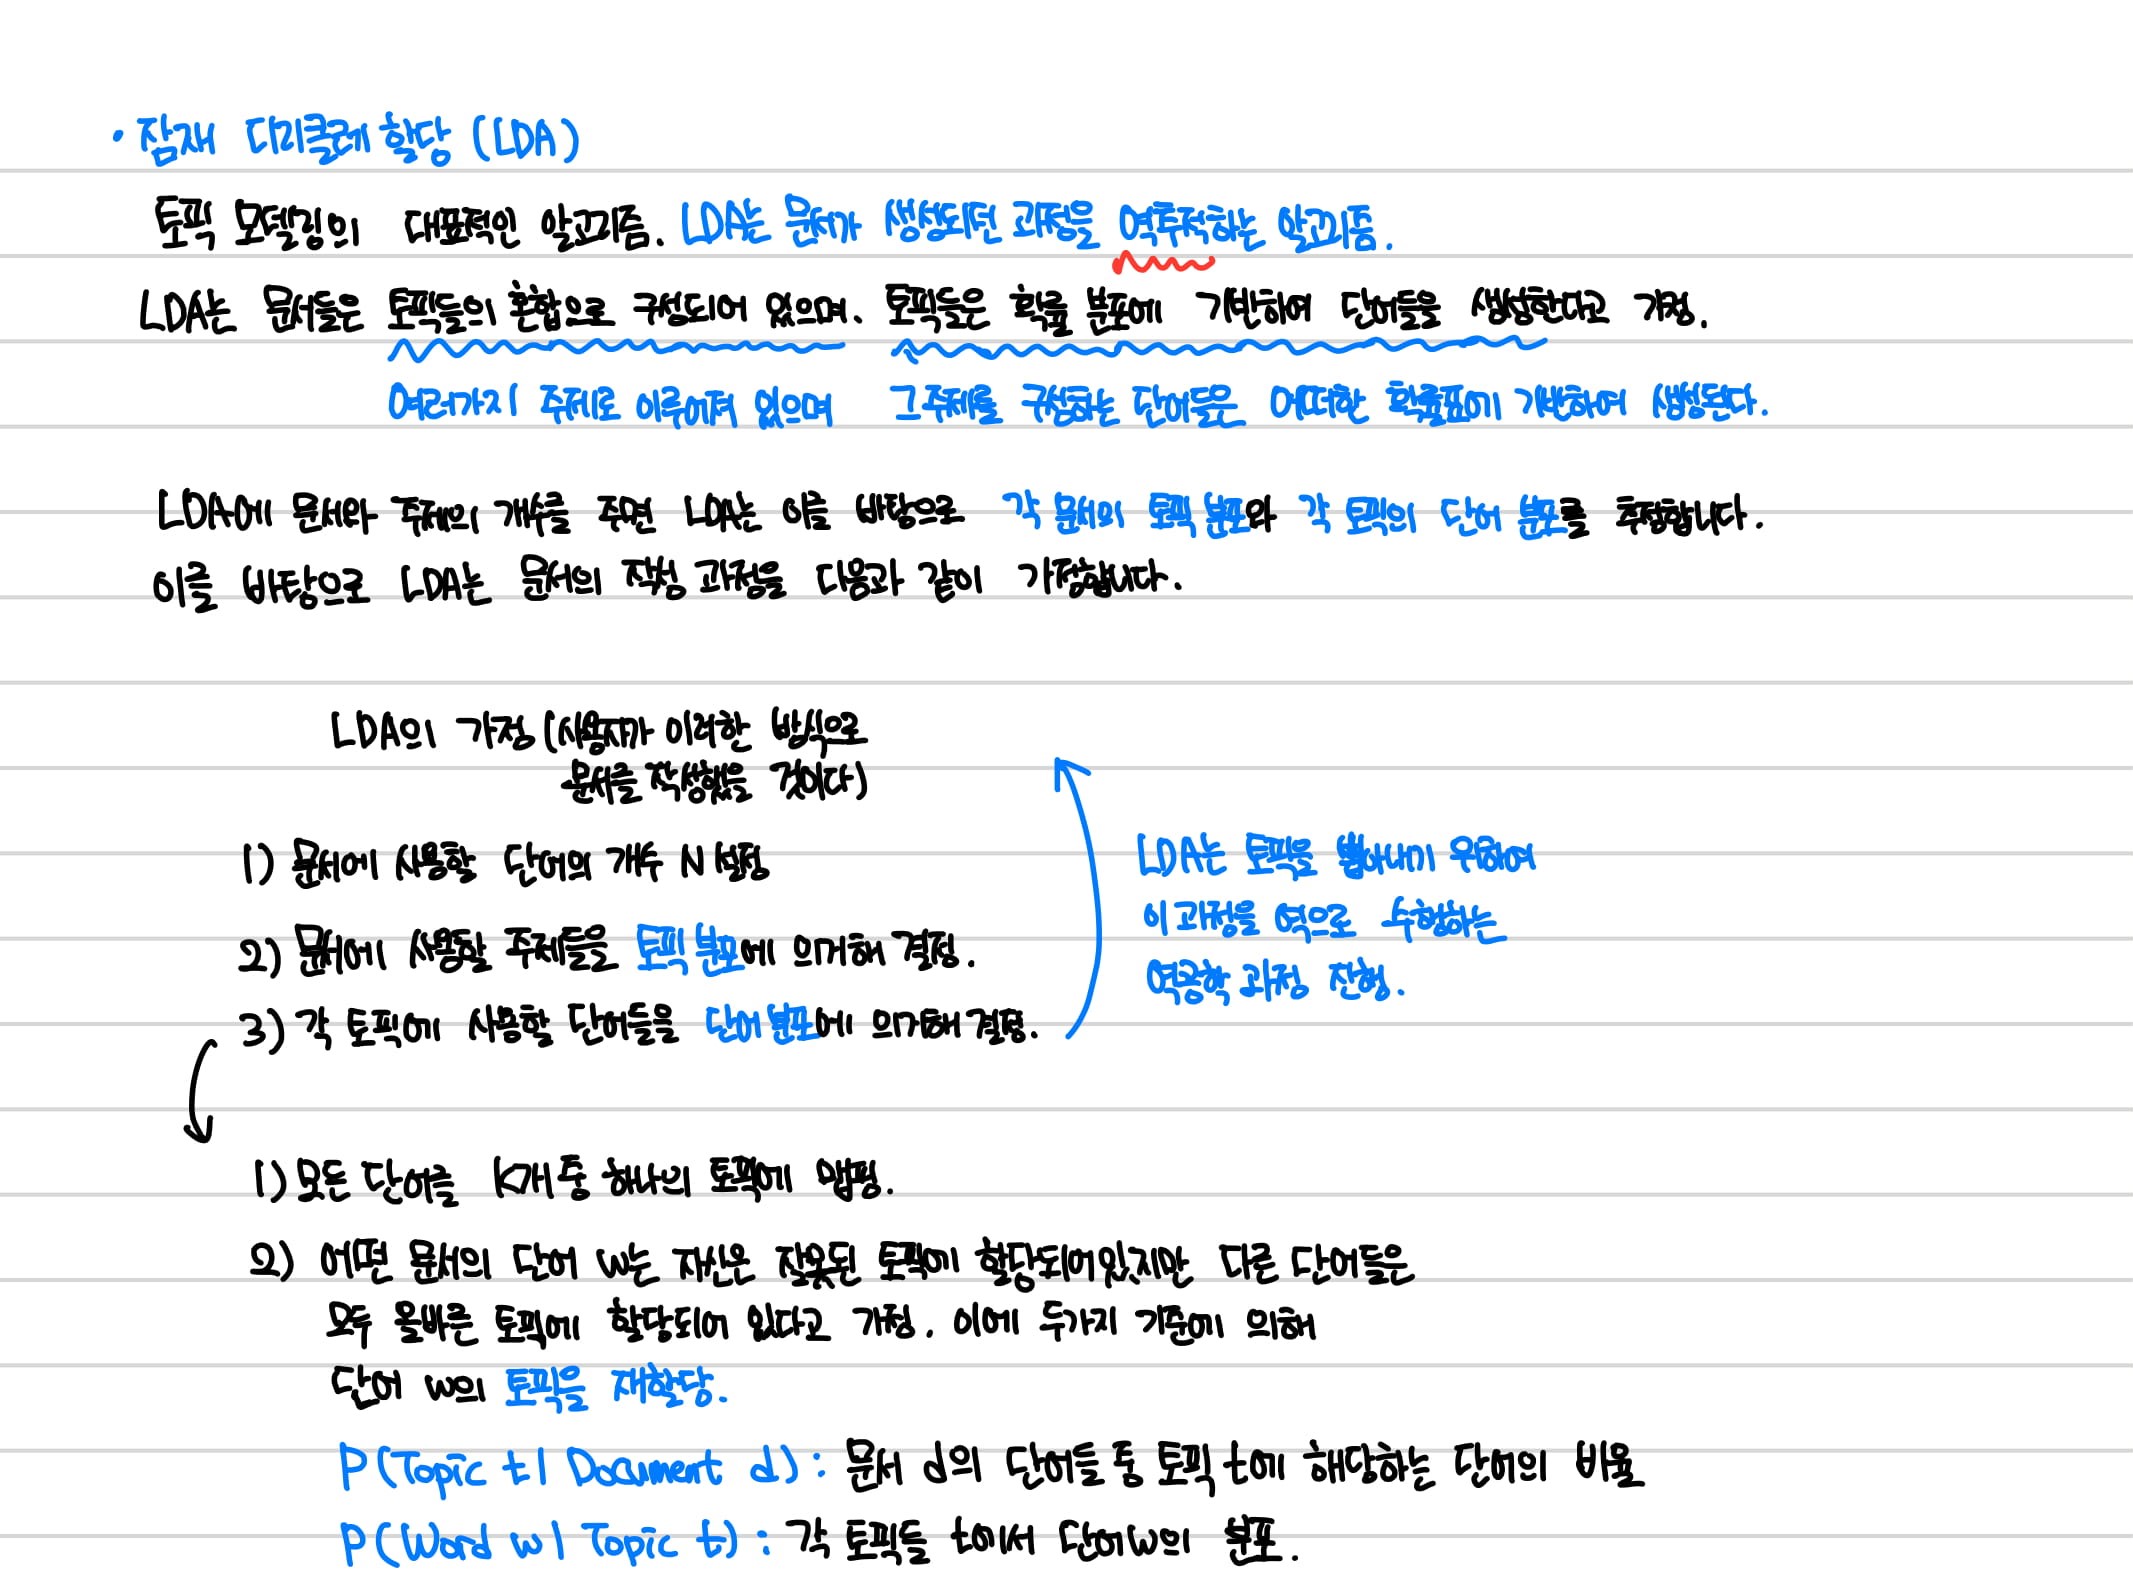 · 잠재 디리클레 할당 (LDA)
토픽 모델링의 대표적인 알고리즘. LDA는 문서가 생성되던 과정을 역추적하는 알고리즘.
LDA는 문서들은 토픽들의 혼합으로 구성되어 있으며. 토픽들은 확률 분포에 기반하여 단어들을 생성한다고 가정.
여러가지 주제로 이루어져 있으며 그 주제를 구성하는 단어들은 어떠한 확률표에 기반하여 생성된다.
LDA에 문서와 주제의 개수를 주면 LDA는 이를 바탕으로 각 문서의 토픽 분포와 각 토픽의 단어 분포를 추정합니다.
이를 바탕으로 LDA는 문서의 작성 과정을 다음과 같이 가정합니다.
LDA의 가정 (사용자가 이러한 방식으로
문서를 작성했을 것이다)
1) 문서에 사용할 단어의 개수 N 설정
2) 문서에 사용할 주제들을 토픽 분포에 의거해 결정.
3) 각 토픽에 사용할 단어들을 단어 분포에 의거해 결정.
LDA는 토픽을 뽑아내기 위하여
이 과정을 역으로 수행하는
역공학 과정 진행.
1) 모든 단어를 K개 중 하나의 토픽에 맵핑.
2) 어떤 문서의 단어 w는 자신은 잘못된 토픽에 할당되어있지만 다른 단어들은
모두 올바른 토픽에 할당되어 있다고 가정. 이에 두가지 기준에 의해
단어 w의 토픽을 재할당.
P(Topic t | Document d) : 문서 d의 단어들 중 토픽 t에 해당하는 단어의 비율
P(Word w | Topic t) : 각 토픽들 t에서 단어 w의 분포.